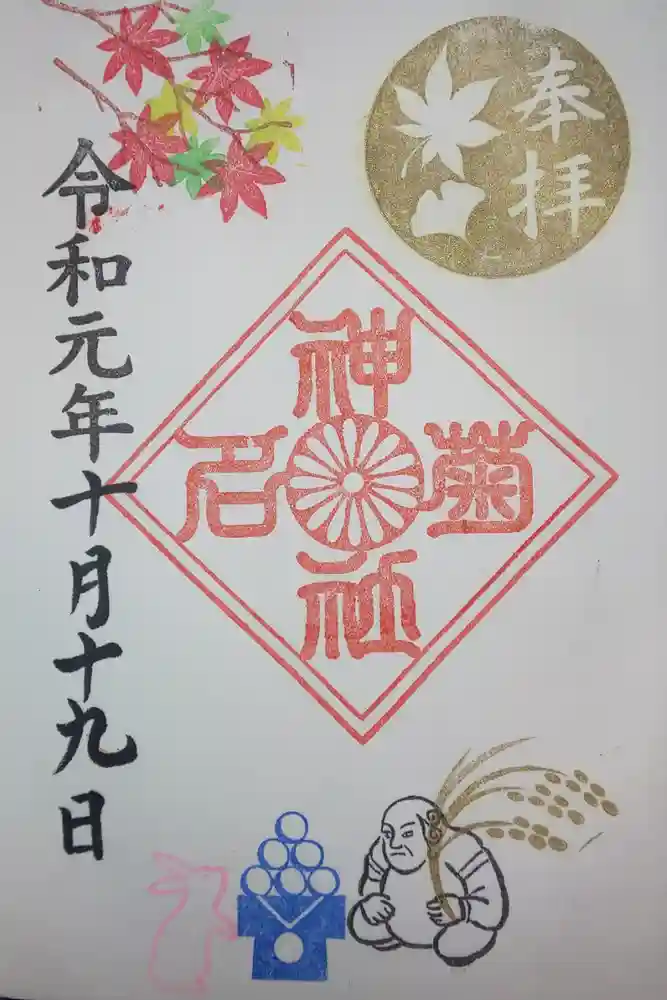 奉拝
菊名神社
令和元年十月十九日